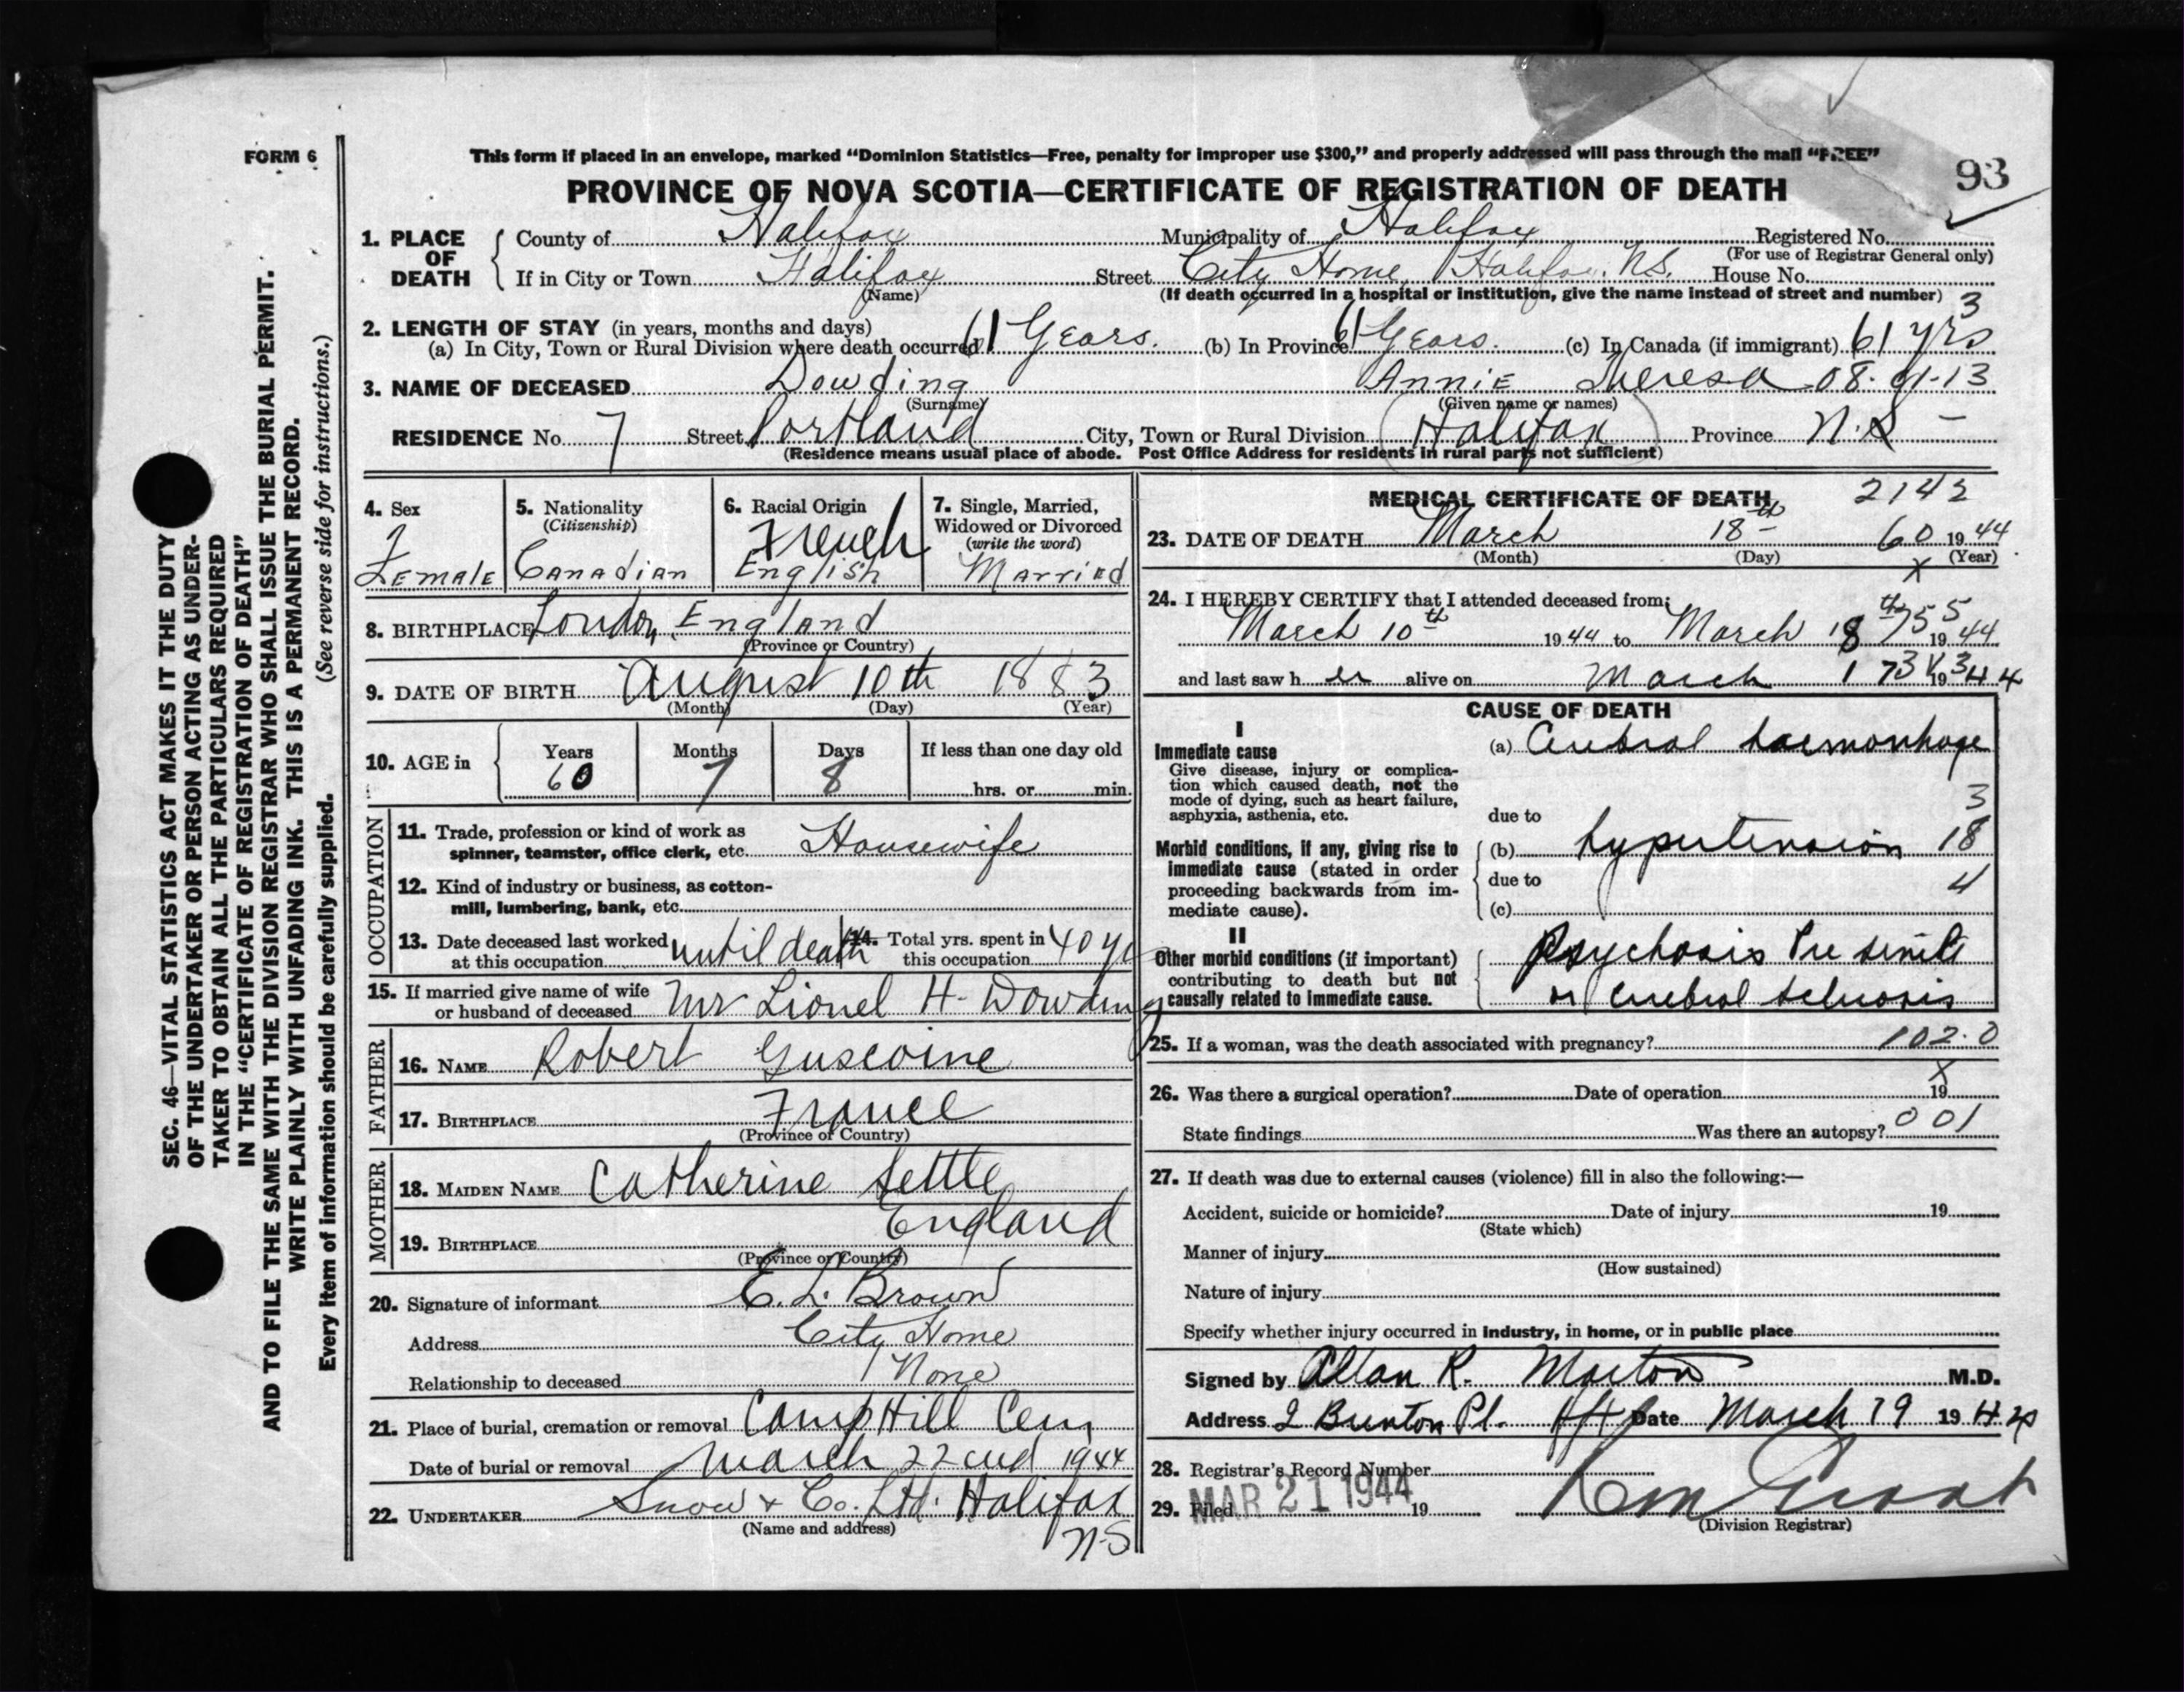 FORM 6
This form if placed in an envelope, marked “Dominion Statistics—Free, penalty for improper use $300,” and properly addressed will pass through the mail “FREE”
93
PROVINCE OF NOVA SCOTIA—CERTIFICATE OF REGISTRATION OF DEATH
1. PLACE OF DEATH County of Halifax Municipality of Halifax Registered No.
(For use of Registrar General only)
If in City or Town Halifax Street City Home Halifax. N.S. House No.
(Name) (If death occurred in a hospital or institution, give the name instead of street and number) 3
2. LENGTH OF STAY (in years, months and days)
(a) In City, Town or Rural Division where death occurred 61 Years. (b) In Province 61 Years. (c) In Canada (if immigrant) 61 yrs
3. NAME OF DECEASED Dowding Annie Theresa 08-01-13
(Surname) (Given name or names)
RESIDENCE No. 7 Street Portland City, Town or Rural Division Halifax Province N.S —
(Residence means usual place of abode. Post Office Address for residents in rural parts not sufficient)
4. Sex 5. Nationality (Citizenship) 6. Racial Origin 7. Single, Married, Widowed or Divorced (write the word)
2
French
Female Canadian English Married
8. BIRTHPLACE London, England
(Province or Country)
9. DATE OF BIRTH August 10th 1883
(Month) (Day) (Year)
10. AGE in Years Months Days If less than one day old
60 7 8 hrs. or min.
OCCUPATION
11. Trade, profession or kind of work as spinner, teamster, office clerk, etc. Housewife
12. Kind of industry or business, as cotton-mill, lumbering, bank, etc.
13. Date deceased last worked at this occupation until death 14. Total yrs. spent in this occupation 40 yr
15. If married give name of wife or husband of deceased Mr Lionel H. Dowding
FATHER
16. NAME Robert
17. BIRTHPLACE France
(Province or Country)
MOTHER
18. MAIDEN NAME Catherine Settle
19. BIRTHPLACE England
(Province or Country)
20. Signature of informant E. L. Brown
Address City Home
Relationship to deceased None
21. Place of burial, cremation or removal Camp Hill Cem
Date of burial or removal March 22cnd 1944
22. UNDERTAKER Snow & Co. Ltd. Halifax
(Name and address) N-S
MEDICAL CERTIFICATE OF DEATH 2142
23. DATE OF DEATH March 18th 60 1944
(Month) (Day) (Year)
x
24. I HEREBY CERTIFY that I attended deceased from;
March 10th 1944 to March 18th 1944
755
and last saw her alive on March 17 1944
CAUSE OF DEATH
I
Immediate cause (a) Cerebral haemorrhage
Give disease, injury or complica-
tion which caused death, not the
mode of dying, such as heart failure,
asphyxia, asthenia, etc. due to 3
Morbid conditions, if any, giving rise to (b) hypertension 18
immediate cause (stated in order due to
proceeding backwards from im- 4
mediate cause). (c)
II
Other morbid conditions (if important) Psychosis Pre senile
contributing to death but not
causally related to immediate cause. or cerebral sclerosis
25. If a woman, was the death associated with pregnancy? 102.0
x
26. Was there a surgical operation? Date of operation 19
State findings Was there an autopsy? 001
27. If death was due to external causes (violence) fill in also the following:—
Accident, suicide or homicide? Date of injury 19
(State which)
Manner of injury
(How sustained)
Nature of injury
Specify whether injury occurred in industry, in home, or in public place
Signed by Allan R. Morton M.D.
Address 2 Pl. Hfx Date March 19 1944
28. Registrar's Record Number
29. Filed MAR 21 1944 19
(Division Registrar)
SEC. 46—VITAL STATISTICS ACT MAKES IT THE DUTY
OF THE UNDERTAKER OR PERSON ACTING AS UNDER-
TAKER TO OBTAIN ALL THE PARTICULARS REQUIRED
IN THE “CERTIFICATE OF REGISTRATION OF DEATH”
AND TO FILE THE SAME WITH THE DIVISION REGISTRAR WHO SHALL ISSUE THE BURIAL PERMIT.
WRITE PLAINLY WITH UNFADING INK. THIS IS A PERMANENT RECORD.
Every item of information should be carefully supplied. (See reverse side for instructions.)